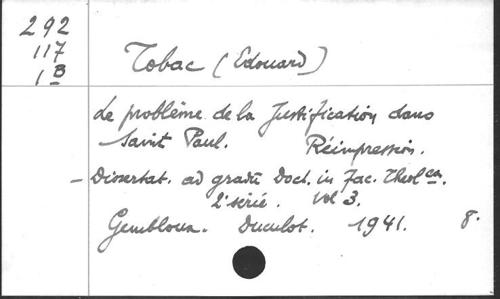 292
117
1B
Tobac (Edouard)
Le problème de la Justification dans
Saint Paul. Réimpression.
- Dissertat. ad gradū Doct. in Fac. Theol ca.
2e série. Vol 3.
Gembloux. Duculot. 1941. 8.